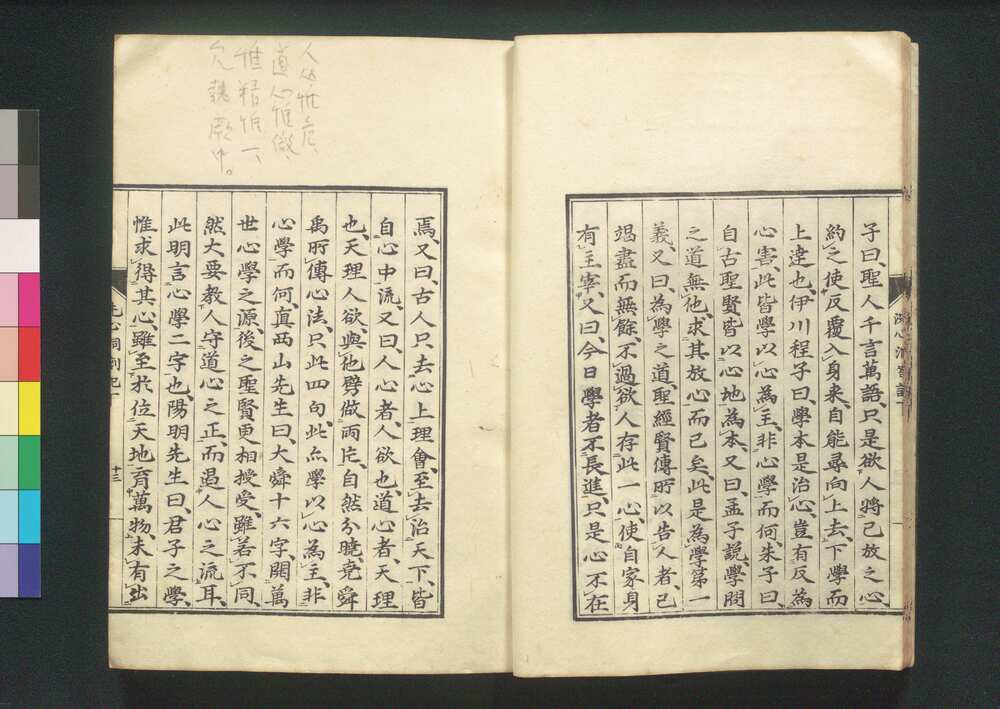 子曰、聖人千言萬語、只是欲人將己放之心、
約之使反覆入身来、自能尋向上去、下學而
上達也、伊川程子曰、學本是治心、豈有反為
心害、此皆學以心為主、非心學而何、朱子曰、
自古聖賢皆以心地為本、又曰、孟子説、學問
之道無他、求其放心而已矣、此是為學第一
義、又曰、為學之道、聖經賢傳所以告人者、已
竭盡而無餘、不過欲人存此一心、使自家身
有主宰、又曰、今日學者不長進、只是心不在
洗心洞劄記
人心惟危、
道心惟微、
惟精惟一、
允執厥中。
焉、又曰、古人只去心上理會、至去治天下、皆
自心中流、又曰、人心者、人欲也、道心者、天理
也、天理人欲、與他劈做兩片、自然分曉、堯舜
禹所傳心法、只此四句、此亦學以心為主、非
心學而何、真西山先生曰、大舜十六字、開萬
世心學之源、後之聖賢更相授受、雖若不同、
然大要教人守道心之正、而遏人心之流耳、
此明言心學二字也、陽明先生曰、君子之學、
惟求得其心、雖至於位天地、育萬物、未有出
洗心洞劄記
十三